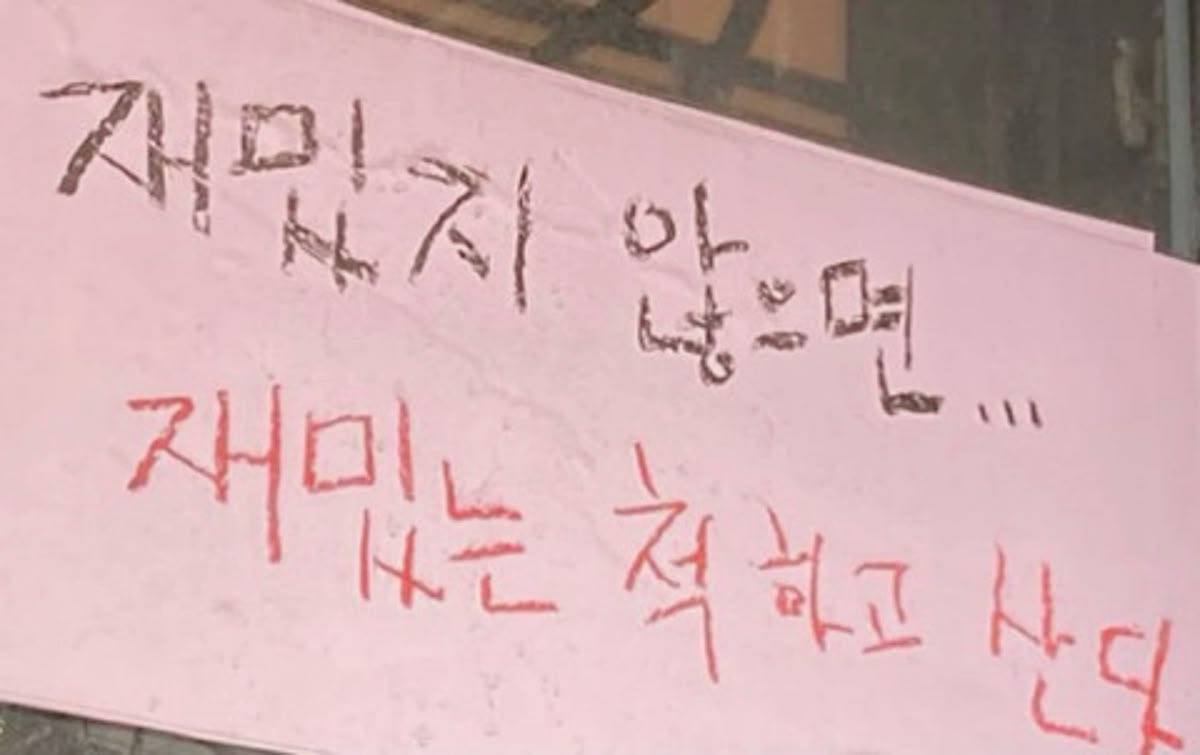 재밌지 않으면...
재밌는 척하고 산다